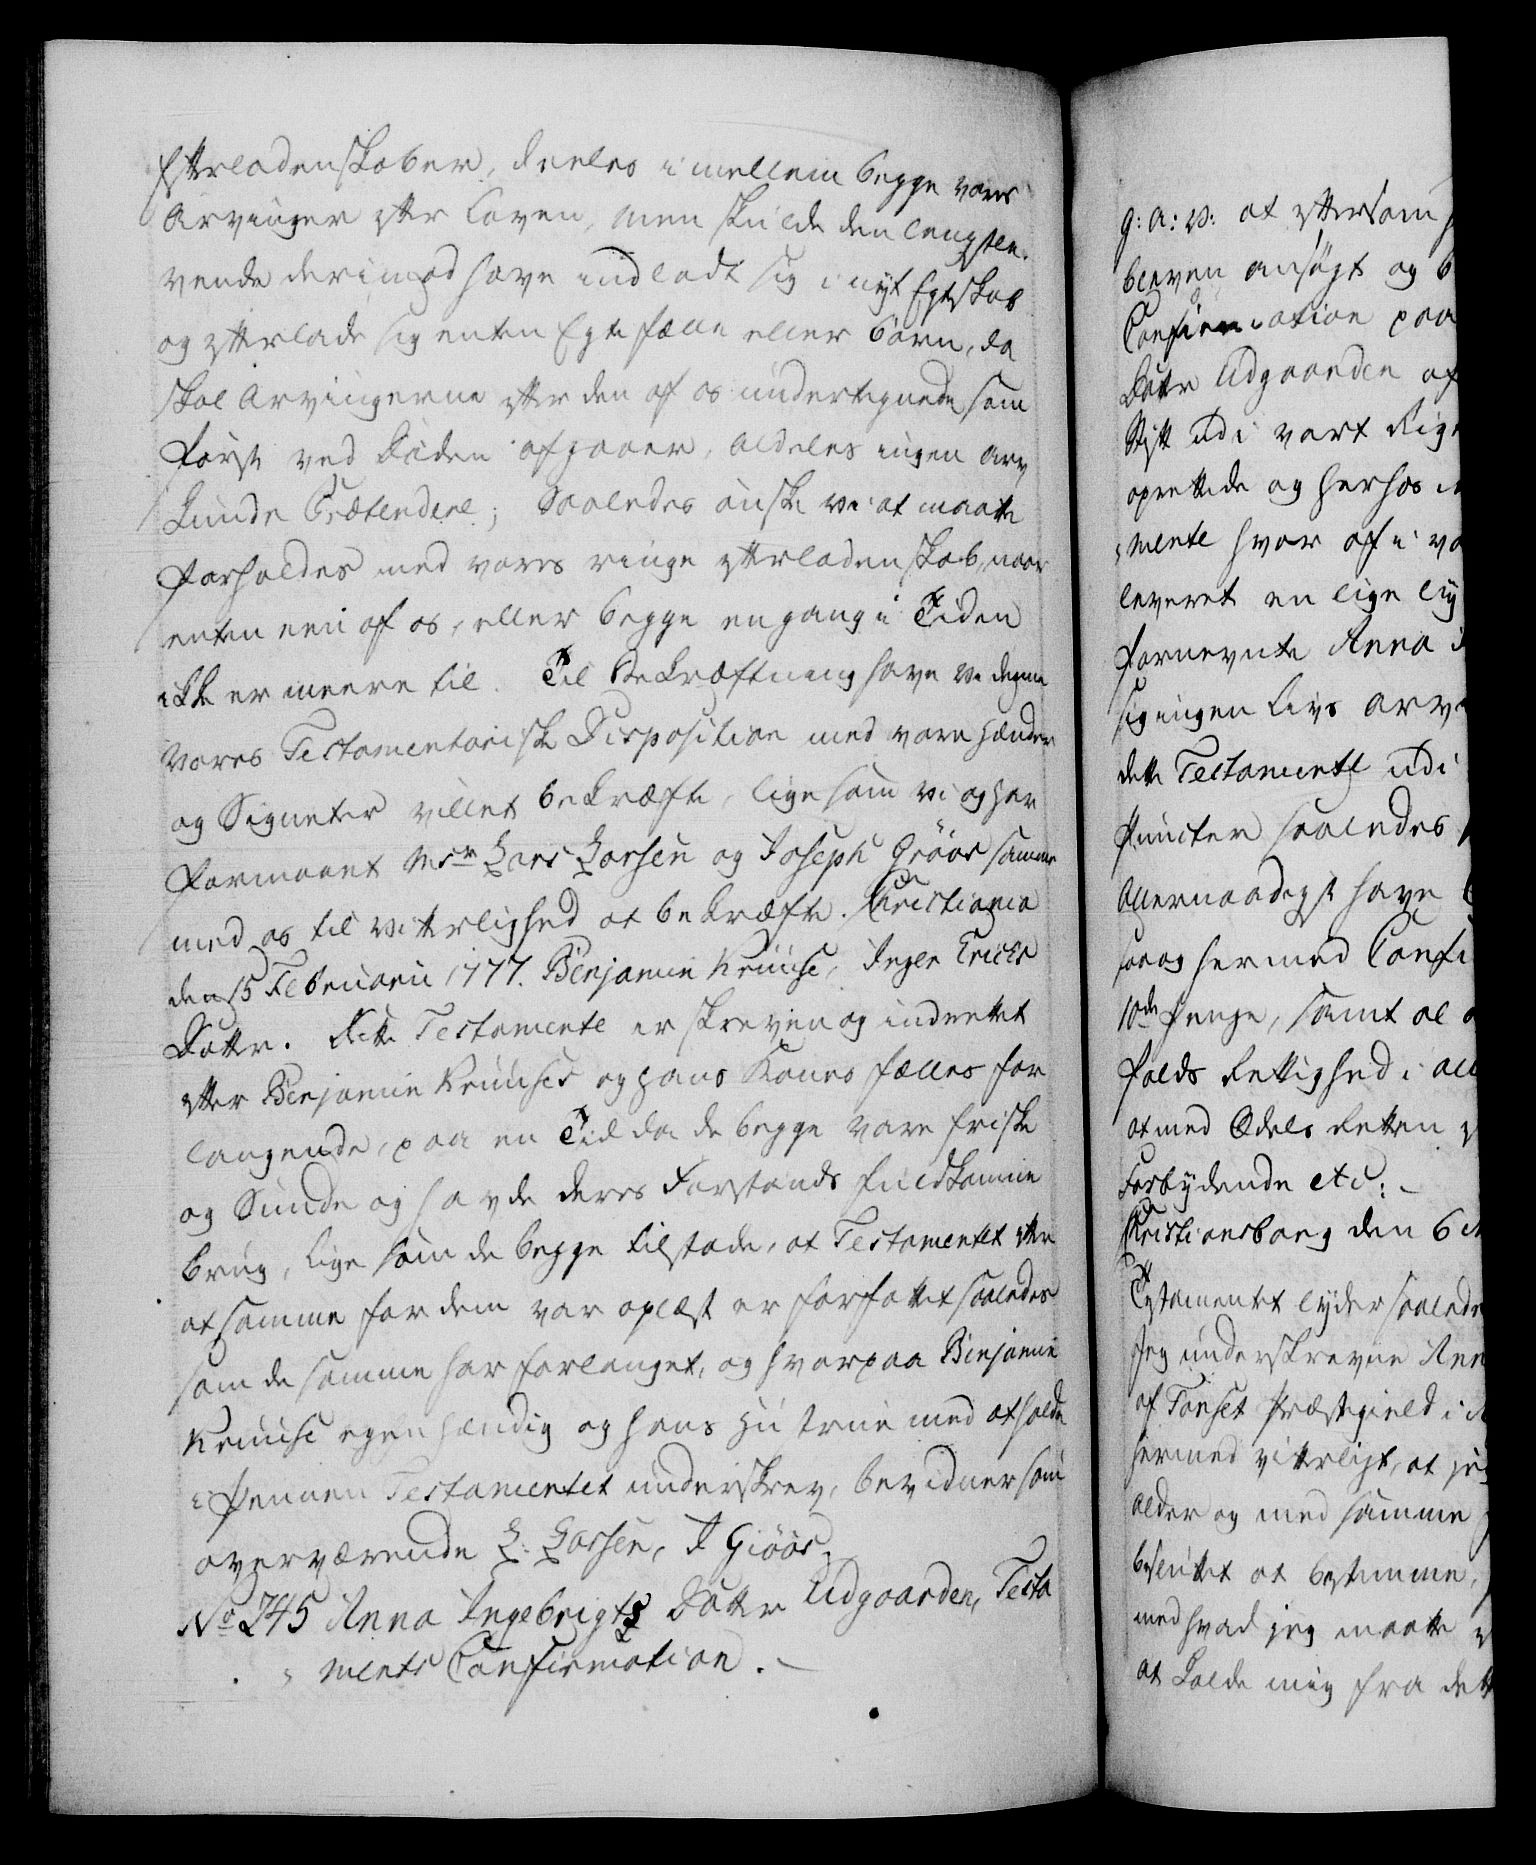 Efterladenskaber, deeles imellem begge vores
Arvinger efter Loven, men skulde den lengstle-
vende derimod have indladt sig i nyt Egteskab
og efterlade sig enten Egtefælle eller Börn, da
skal Arvingerne efter den af os undertegnede som
först ved Döden afgaaer, aldeles ingen Arv
kunde Prætendere; Saaledes önske vi at maatte
forholdes med vores ringe efterladenskab, naar
enten een af os, eller begge engang i Tiden
ikke er meere til. Til Bekræftning have vi denne
vores Testamentariske Disposition med vore Hænder
og Signeter villet bekræfte, ligesom vi og har
formaaet Msr Lars Larsen og Joseph Giöös samme
med os til vitterlighed at bekræfte. Christiania
den 15 Februarii 1777. Benjamin Kruuse, Inger Erichs
Datter. Dette Testamente er skreven og indrettet
efter Benjamin Kruuses og hans Kones fælles for
langende, paa en Tid da de begge vare friske
og Sunde og havde deres Forstands fuldkomne
brug, ligesom de begge tilstode, at Testamentet efter
at samme for dem var oplæst er forfattet saaledes
som de samme har forlanget, og hvorpaa Benjamin
Kruuse egenhændig og hans Hustrue med atholde
i Pennen Testamentet underskrev, bevidner som
overværende L: Larsen, J Giöös.
No 245 Anna Ingebrigts Datter Udgaarden, Testa
ments Confirmation.
g: a: v: at eftersom
bleven ansögt og b
Confirmation paa
Datter Udgaarden af
Stift udi vort Rige
oprettede og herhos
mente hvor af i vo
leveret en lige lig
fornevnte Anna
sig ingen Livs Arv
dette Testamente udi
Puncter saaledes
Allernaadigst have
saa og hermed Confi
10de Penge, samt al
falds Rettighed i all
at med Odels Retten
Forbydende etc: -
Christiansborg den 6
Testamentet lyder saaledes
Jeg underskrevne Ann
af Tönset Præstegield i
hermed vitterligt, at jeg
alder og med samme
besluttet at bestemme,
med hvad jeg maatte
at kalde mig fra dette